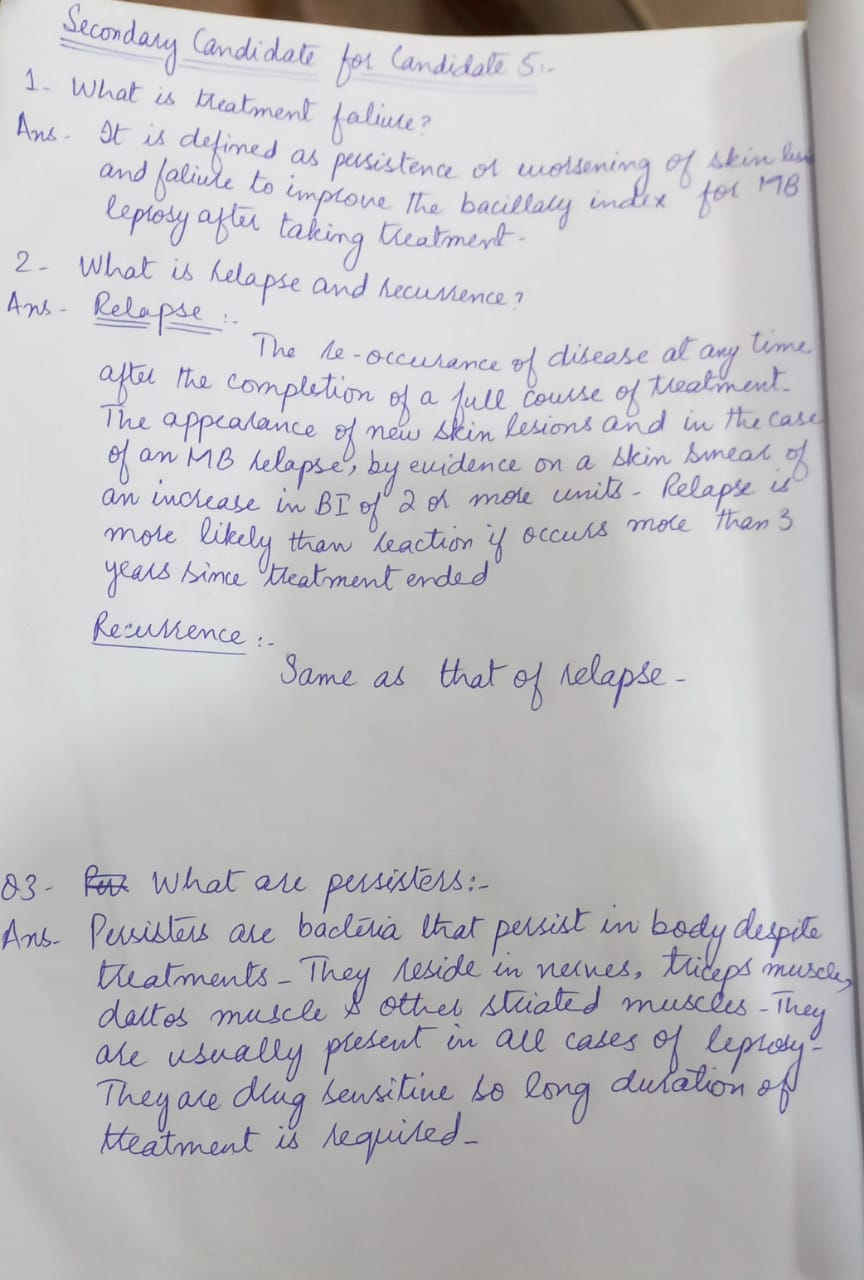 Secondary Candidate for Candidate 5:-
1- What is treatment faliure?
Ans- It is defined as persistence or worsening of skin
and faliure to improve the bacillary index for MB
leprosy after taking treatment-
2- What is relapse and recurrence?
Ans- Relapse :-
The re-occurance of disease at any time
after the completion of a full course of treatment-
The appearance of new skin lesions and in the case
of an MB relapse, by evidence on a skin smear of
an increase in BI of 2 or more units- Relapse is
more likely than reaction if occurs more than 3
years since treatment ended
Recurrence :-
Same as that of relapse-
Q3- What are persisters:-
Ans- Persisters are bacteria that persist in body despite
treatments- They reside in nerves, triceps muscle,
dartos muscle & other striated muscles- They
are usually present in all cases of leprosy-
They are drug sensitive so long duration of
treatment is required-